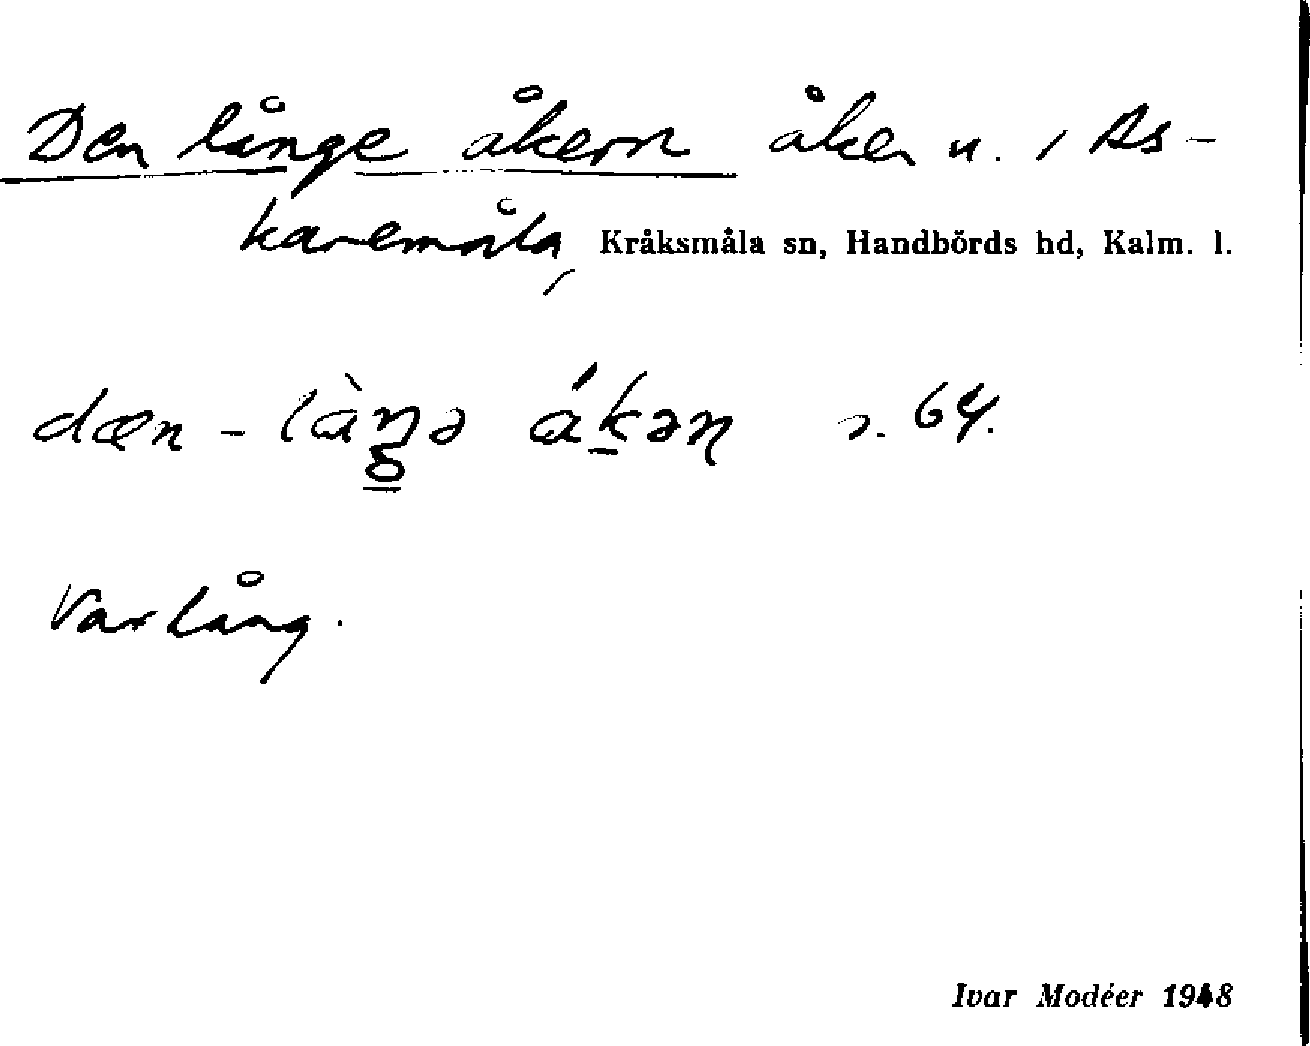 Den långe åkern åker n. i As-
karemåla, Kråksmåla sn, Handbörds hd, Kalm. l.
dæn - làŋə ákəɳ s. 64.
Var lång.
Ivar Modéer 1948